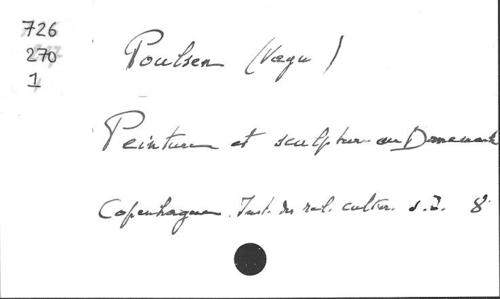 726
270
1
Poulsen (Vagn)
Peinture et sculpture au Danemark
Copenhague. Inst. des rel. cultur. s. d. 8°